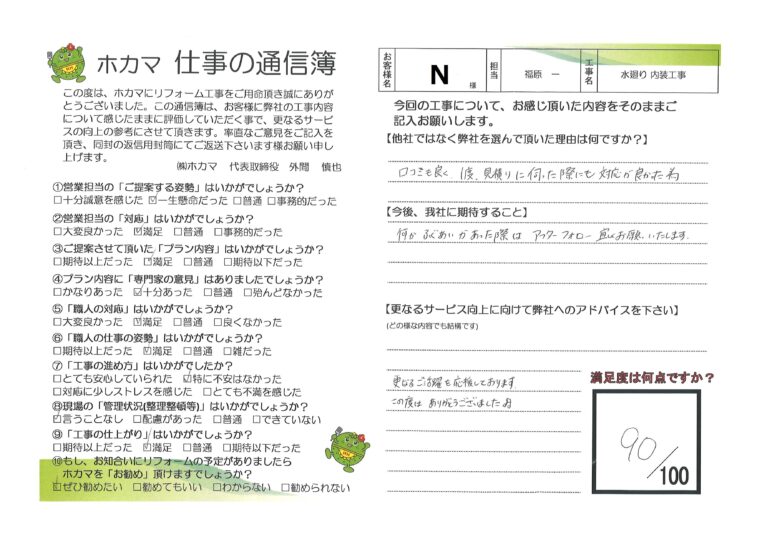 ホカマ 仕事の通信簿
この度は、ホカマにリフォーム工事をご用命頂き誠にありが
とうございました。この通信簿は、お客様に弊社の工事内容
について感じたままに評価していただく事で、更なるサービ
スの向上の参考にさせて頂きます。率直なご意見をご記入を
頂き、同封の返信用封筒にてご返送下さいます様お願い申し
上げます。
㈱ホカマ 代表取締役 外間 慎也
①営業担当の「ご提案する姿勢」はいかがでしょうか?
□十分誠意を感じた ☑一生懸命だった □普通 □事務的だった
②営業担当の「対応」はいかがでしょうか?
□大変良かった ☑満足 □普通 □事務的だった
③ご提案させて頂いた「プラン内容」はいかがでしょうか?
□期待以上だった ☑満足 □普通 □期待以下だった
④プラン内容に「専門家の意見」はありましたでしょうか?
□かなりあった ☑十分あった □普通 □殆んどなかった
⑤「職人の対応」はいかがでしょうか?
□大変良かった ☑満足 □普通 □良くなかった
⑥「職人の仕事の姿勢」はいかがでしょうか?
□期待以上だった ☑満足 □普通 □雑だった
⑦「工事の進め方」はいかがでしたか?
□とても安心していられた ☑特に不安はなかった
□対応に少しストレスを感じた □とても不満を感じた
⑧現場の「管理状況(整理整頓等)」はいかがでしょうか?
☑言うことなし □配慮があった □普通 □できていない
⑨「工事の仕上がり」はいかがでしょうか?
□期待以上だった ☑満足 □普通 □期待以下だった
⑩もし、お知合いにリフォームの予定がありましたら
ホカマを「お勧め」頂けますでしょうか?
☑ぜひ勧めたい □勧めてもいい □わからない □勧められない
お客様名 N 様 担当 福原 一 工事名 水廻り 内装工事
今回の工事について、お感じ頂いた内容をそのままご
記入お願いします。
【他社ではなく弊社を選んで頂いた理由は何ですか?】
口コミも良く、見積りに伺った際にも対応が良かた為
【今後、我社に期待すること】
何か あった際は アフターフォロー 宜しくお願いいたします。
【更なるサービス向上に向けて弊社へのアドバイスを下さい】
(どの様な内容でも結構です)
更なるご活躍を応援しております
この度は ありがとうございました
満足度は何点ですか?
90/100